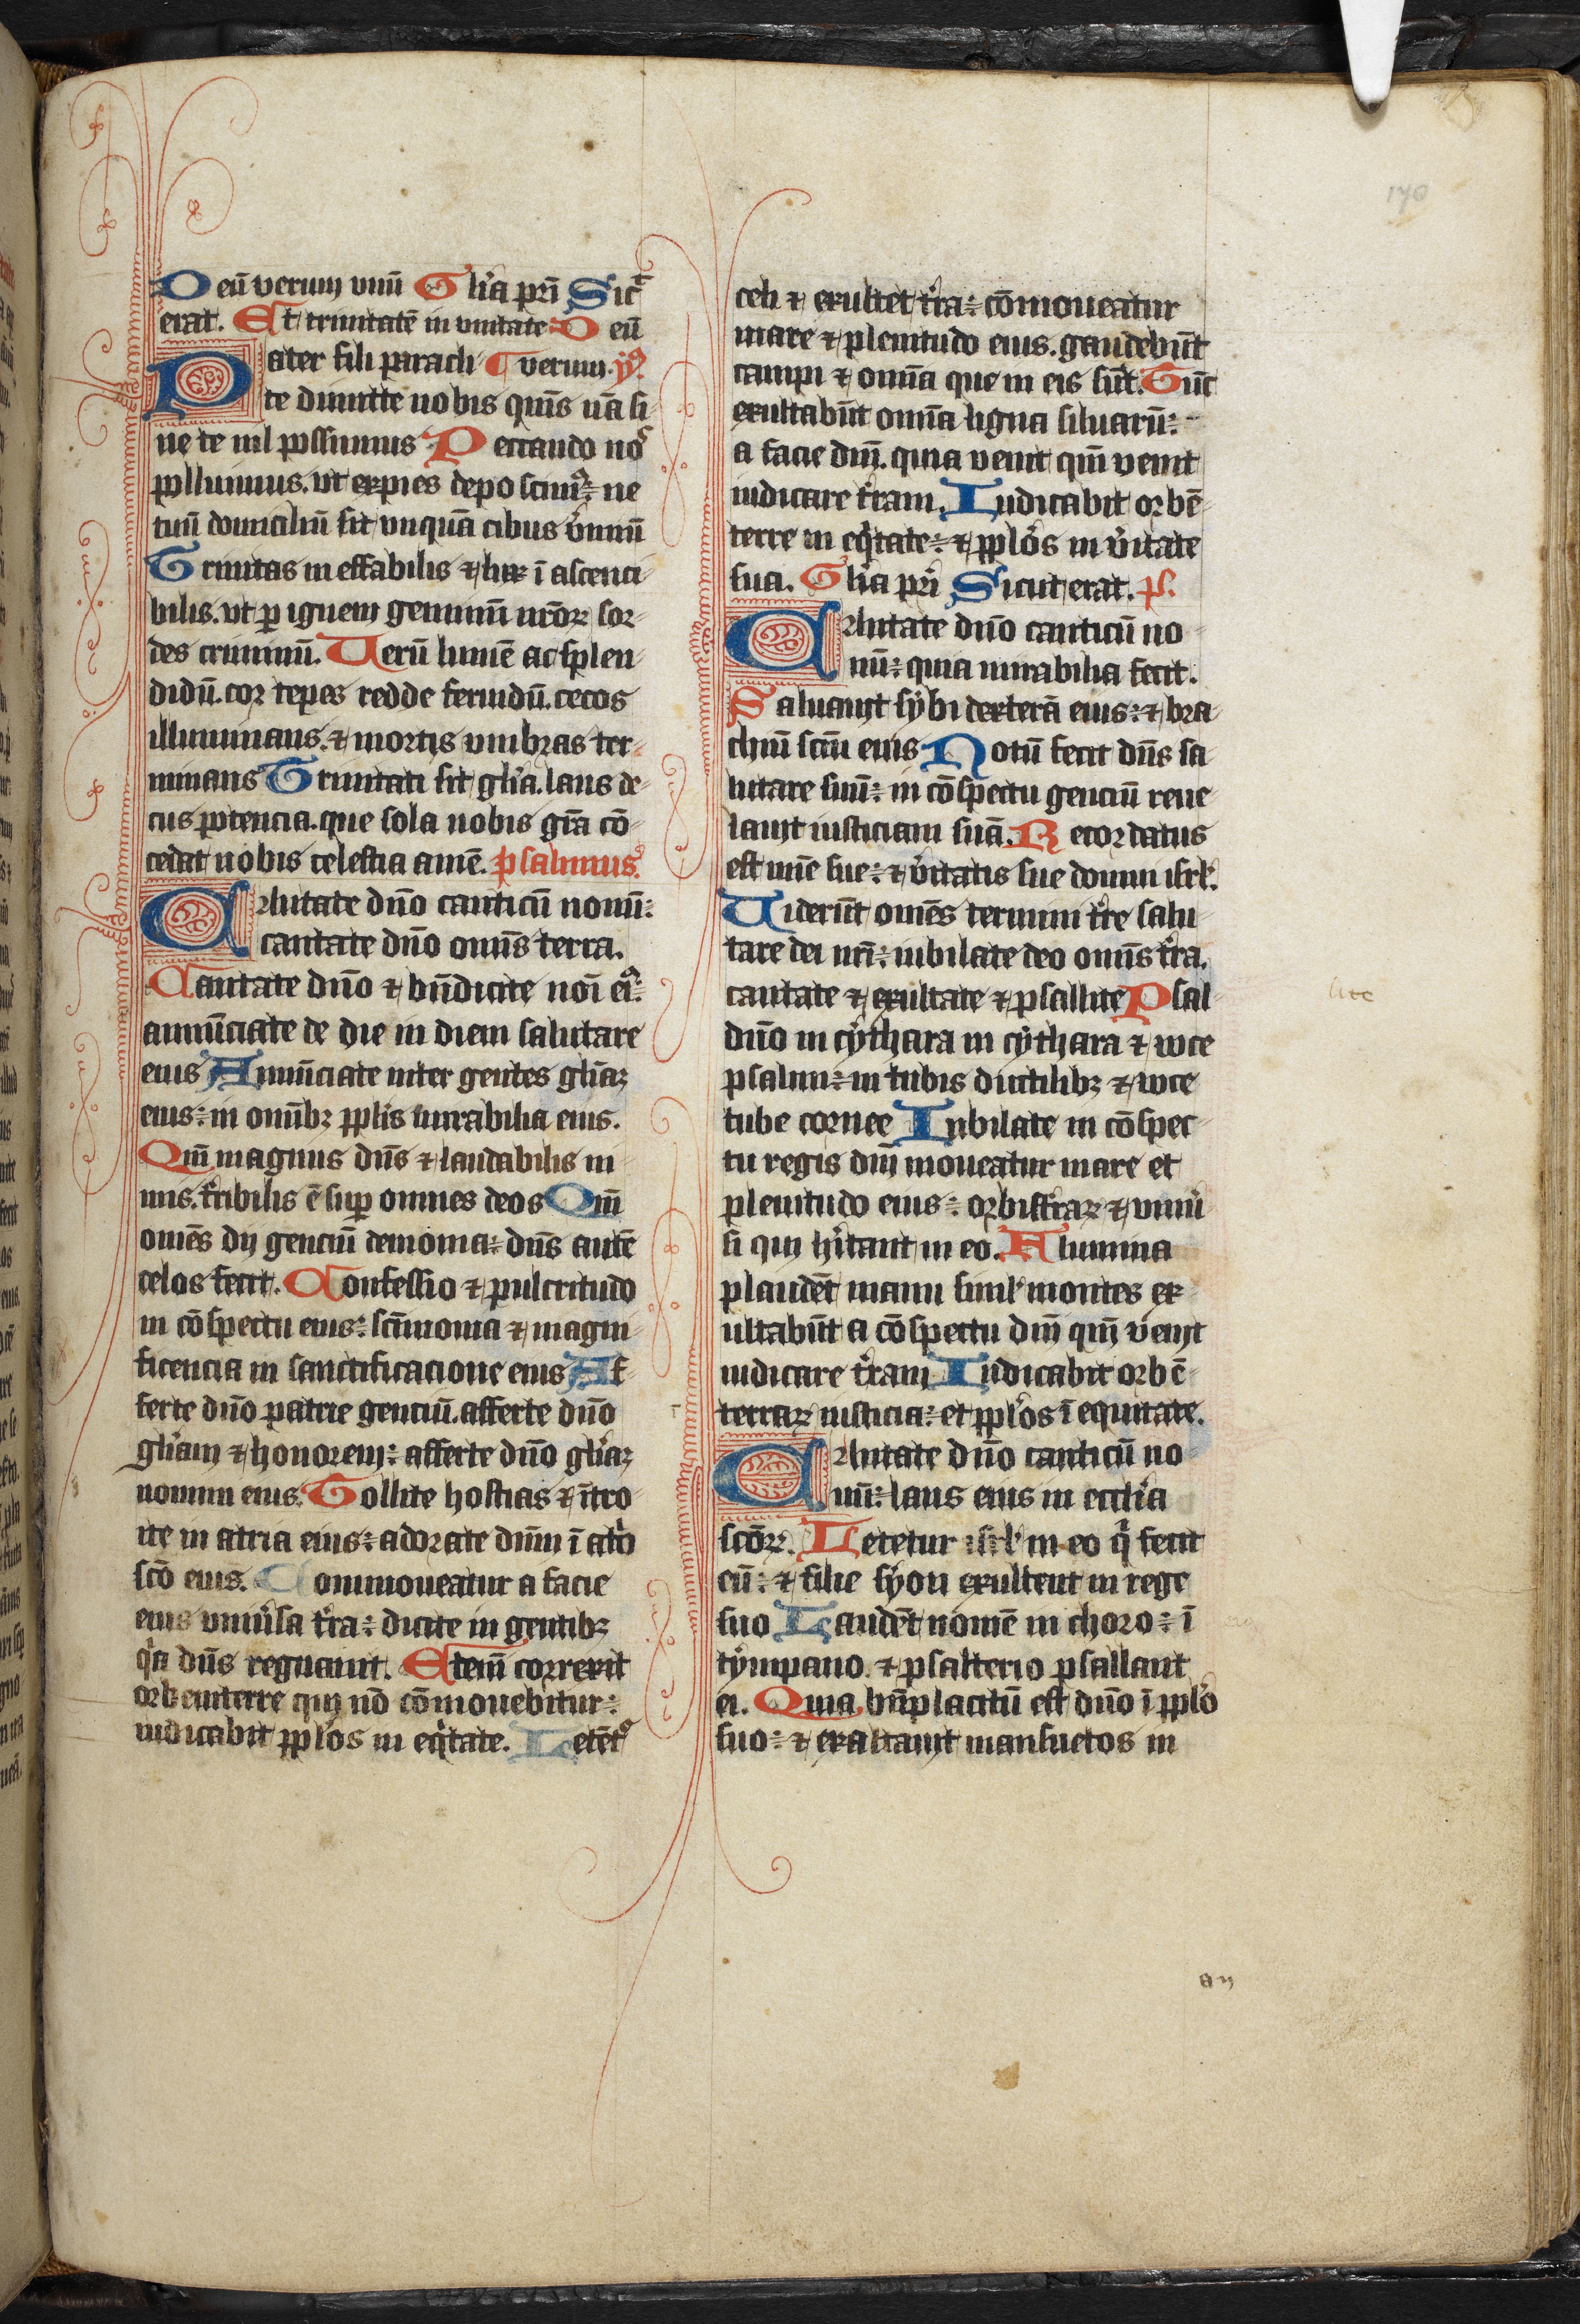 Deū verum vnū Gl'ia pr̄i Sic̄
erat. Et trinitatē in vnitate Deū
Pater fili paracli ¶ verum. ẏꝰ
te dimitte nobis quīs vn̄a si
ne te nil possumus Peccando nos
polluimus. vt expies deposcimꝰ: ne
tuū domicilū sit vnquā cibus v̓miū
Trinitas ineffabilis ⁊ lux ī ascenci
bilis. vt ꝑ ignem geminū nr̄oꝝ sor
des criminū. Uerū lumē ac splen
didū. cor tepes redde feruidū. cecos
illuminans. ⁊ mortis vmbras ter
minans Trinitati sit gl'ia. laus de
cus potencia. que sola nobis gr̄a cō
cedat nobis celestia amē. psalmus.
Cantate dn̄o canticū nouū:
cantate dn̄o omīs terra.
Cantate dn̄o ⁊ bn̄dicite noī eiꝰ:
annūciate de die in diem salutare
eius Annūciate inter gentes gl'iaꝫ
eius: in omībꝫ ppl'is mirabilia eius.
Qm̄ magnus dn̄s ⁊ laudabilis ni
mis. tribilis ē suꝑ omnes deos Qm̄
omēs dij genciū demonia: dn̄s autē
celos fecit. Confessio ⁊ pulcritudo
in cōspectu eius: scīmonia ⁊ magni
ficencia in sanctificacione eius Af
ferte dn̄o patrie genciū. afferte dn̄o
gl'iam ⁊ honorem: afferte dn̄o gl'iaꝫ
nomini eius. Tollite hostias ⁊ ītro
ite in atria eius: adorate dn̄m ī at'o
scō eius. Commoueatur a facie
eius vniu'sa tr̓a: dicite in gentibꝫ
q'a dn̄s regnauit. Etem̄ correxit
orbem terre qui nō cōmouebitur:
iudicabit ppl'os in eq'tate. Letētꝰ
celi ⁊ exultet tr̓a: cōmoueatur
mare ⁊ plenitudo eius. gaudebūt
campi ⁊ omīa que in eis sūt. Tūc
exultabūt omīa ligna siluarū:
a facie dn̄i. quia venit qm̄ venit
iudicare tr̓am. Iudicabit orbē
terre in eq'tate: ⁊ ppl'os in v̓itate
sua. Gl'ia pr̄i Sicut erat. ps.
Cantate dn̄o canticū no
uū: quia mirabilia fecit.
Saluauit sybi dexterā eius: ⁊ bra
chiū scm̄ eius Notū fecit dn̄s sa
lutare suū: in cōspectu genciū reue
lauit iusticiam suā. Recordatus
est mīe sue: ⁊ v̓itatis sue domui isrl'.
Uiderūt omēs termini tr̓e salu
tare dei nr̄i: iubilate deo omīs tr̓a.
cantate ⁊ exultate ⁊ psallite Psal
dn̄o in cythara in cythara ⁊ voce
psalmi: in tubis ductilibꝫ ⁊ voce
tube cornee Iubilate in cōspec
tu regis dn̄i moueatur mare et
plenitudo eius: orbistr̓aꝝ ⁊ vniu'
si qui h'itant in eo. Flumina
plaudēt manu simil' montes ex
ultabūt a cōspectu dn̄i qm̄ venit
iudicare tr̓am Iudicabit orbē
terraꝝ iusticia: et ppl'os ī equitate.
Cantate dn̄o canticū no
uū: laus eius in eccl'ia
scōꝝ. Letetur isrl' in eo q' fecit
eū: ⁊ filie syon exultent in rege
suo Laudēt nomē in choro: ī
tympano. ⁊ psalterio psallant
ei. Quia bn̄placitū est dn̄o ī ppl'o
suo: ⁊ exaltauit mansuetos in